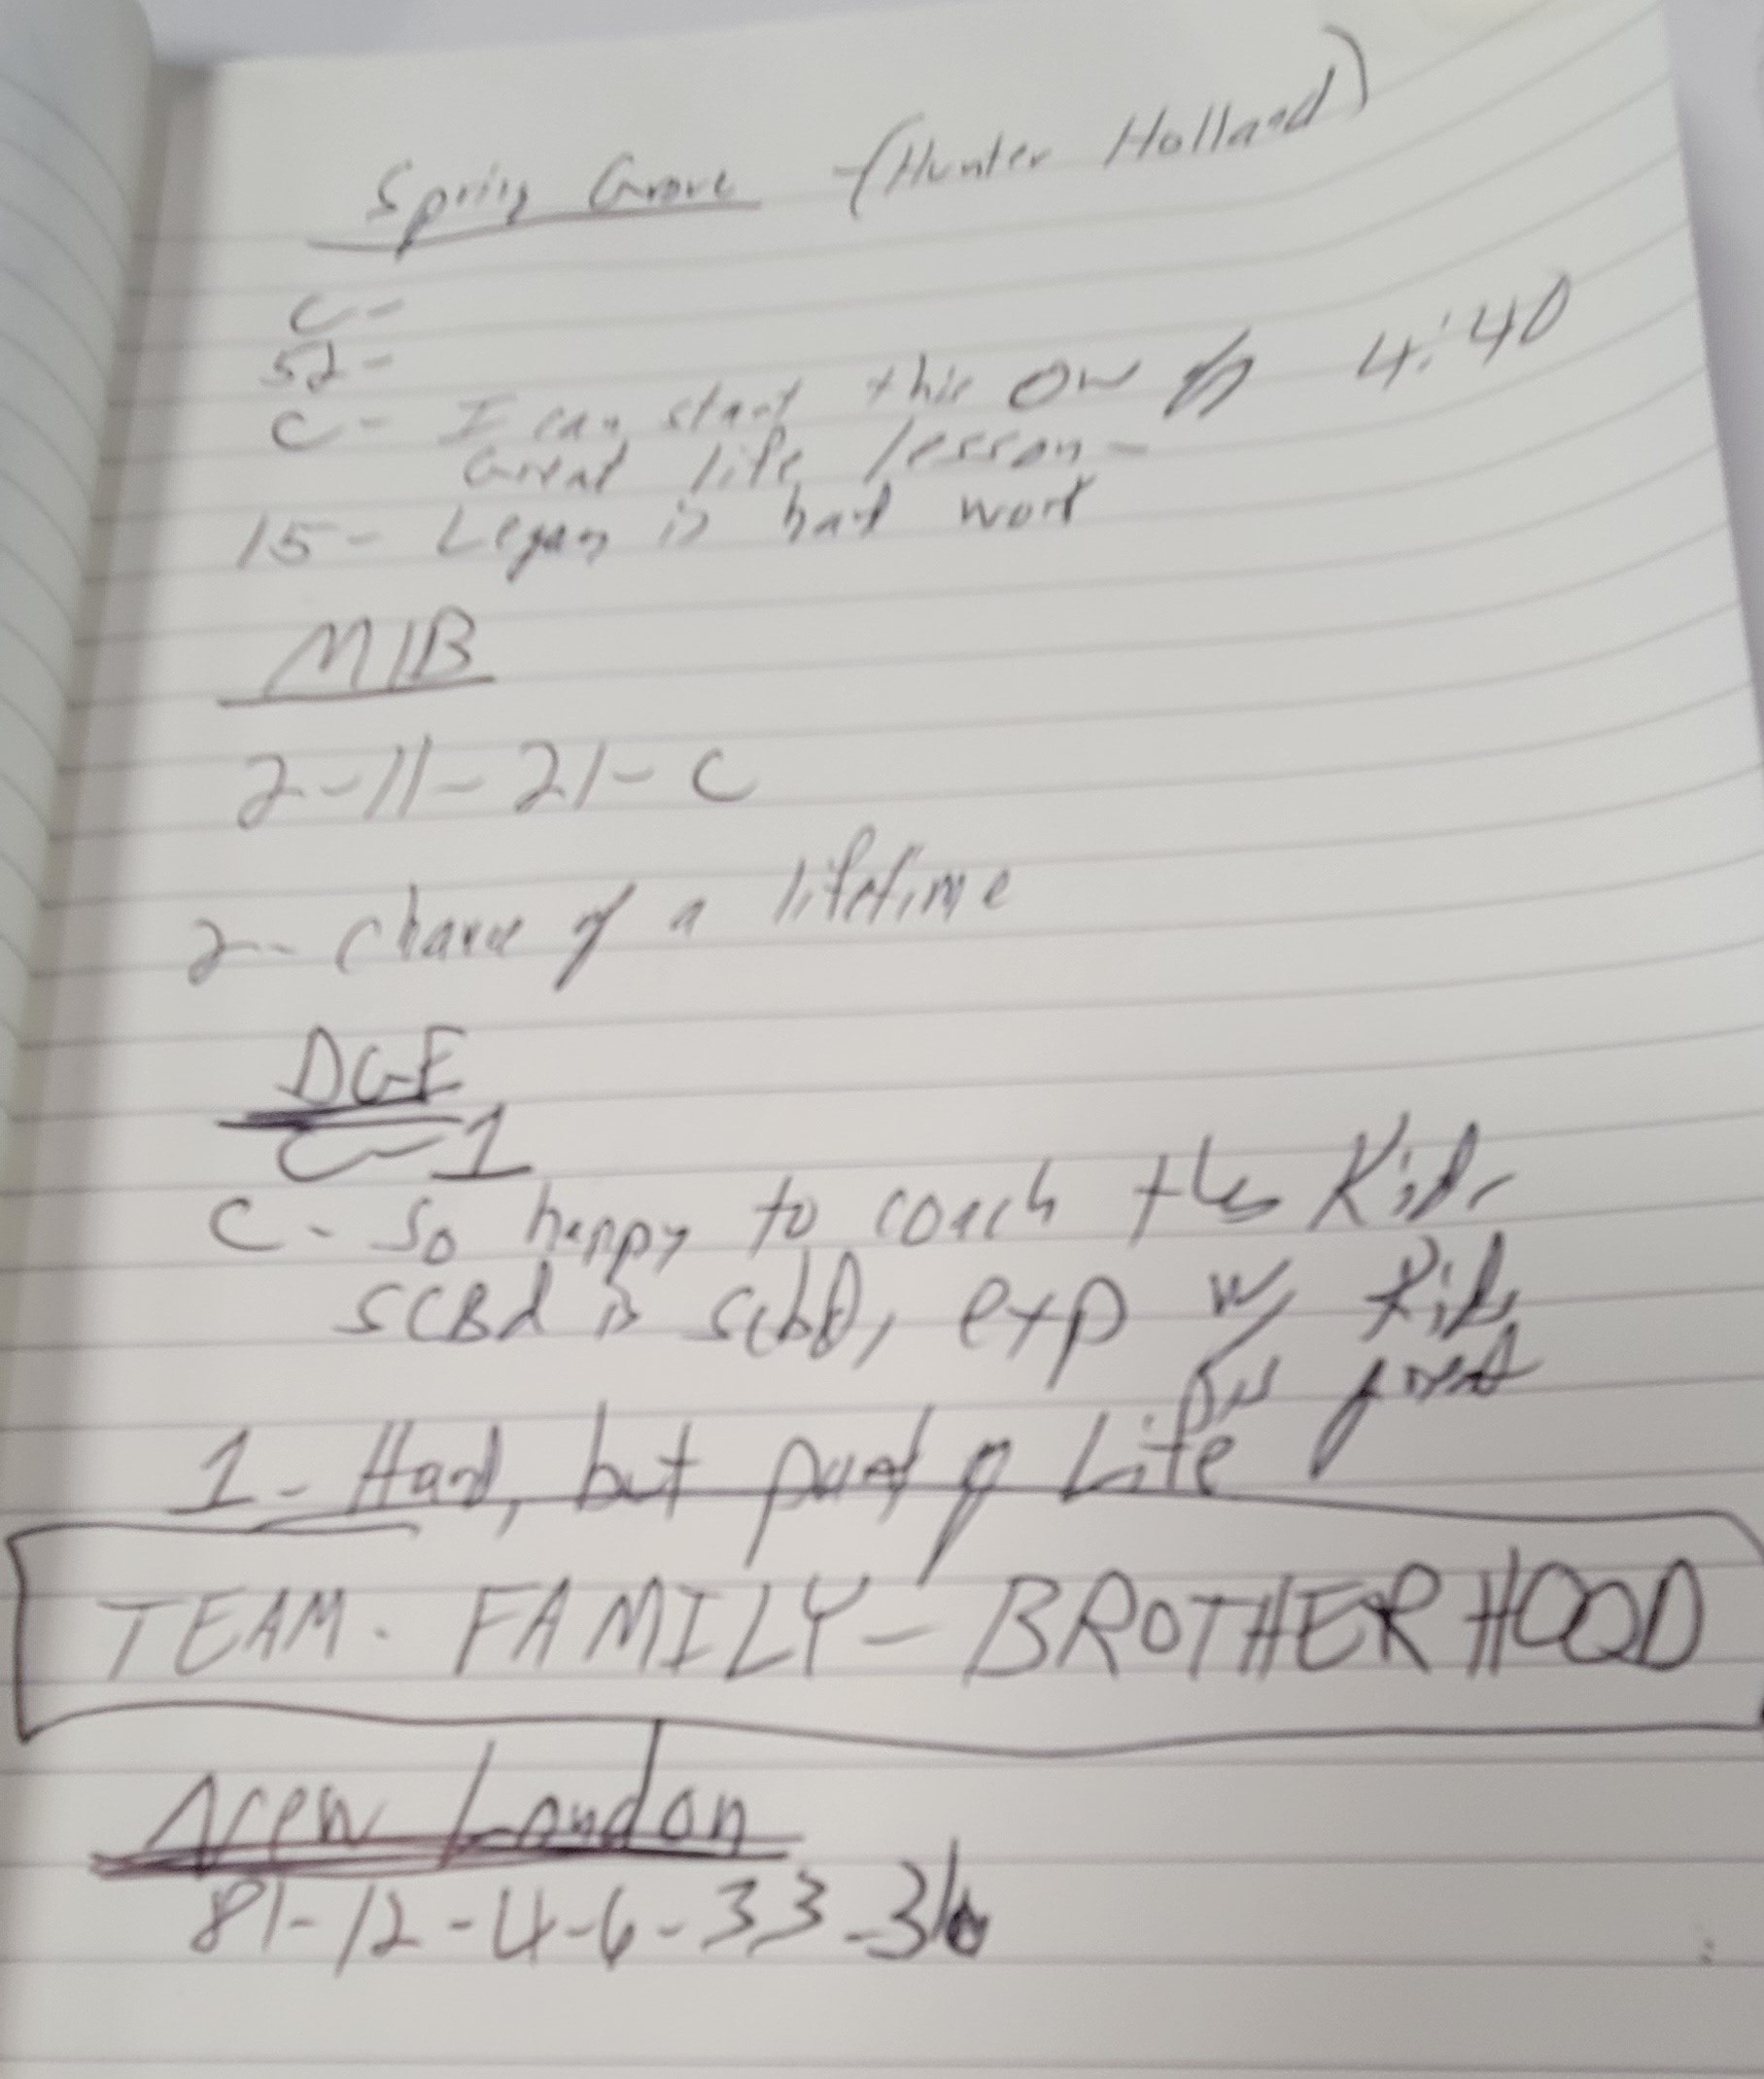 Spring Grove - (Hunter Holland)
C -
52 -
C - I can start this on 4:40
Great life lesson -
15 - is hard work
MIB
2-11-21-C
2 - chance of a lifetime
DGE
C-1
C - So happy to coach the Kids
SCBd is Scbd, exp w/ Kids
great
1 - Hard, but part of Life
TEAM - FAMILY - BROTHERHOOD
New London
81-12-4-6-33-36